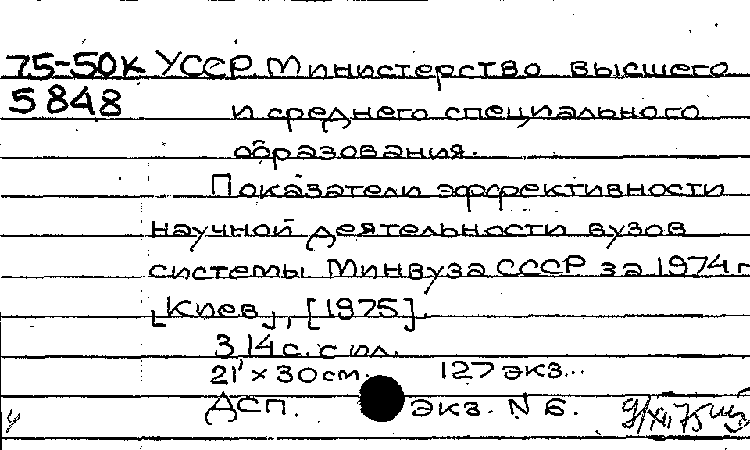 75-50к УССР. Министерство высшего
5848 и среднего специального
образования.
Показатели эффективности
научной деятельности вузов
системы Минвуза СССР за 1974 г
[Киев], [1975].
314 с. с ил.
21 × 30 см. 127 экз..
ДСП. экз. N 6.